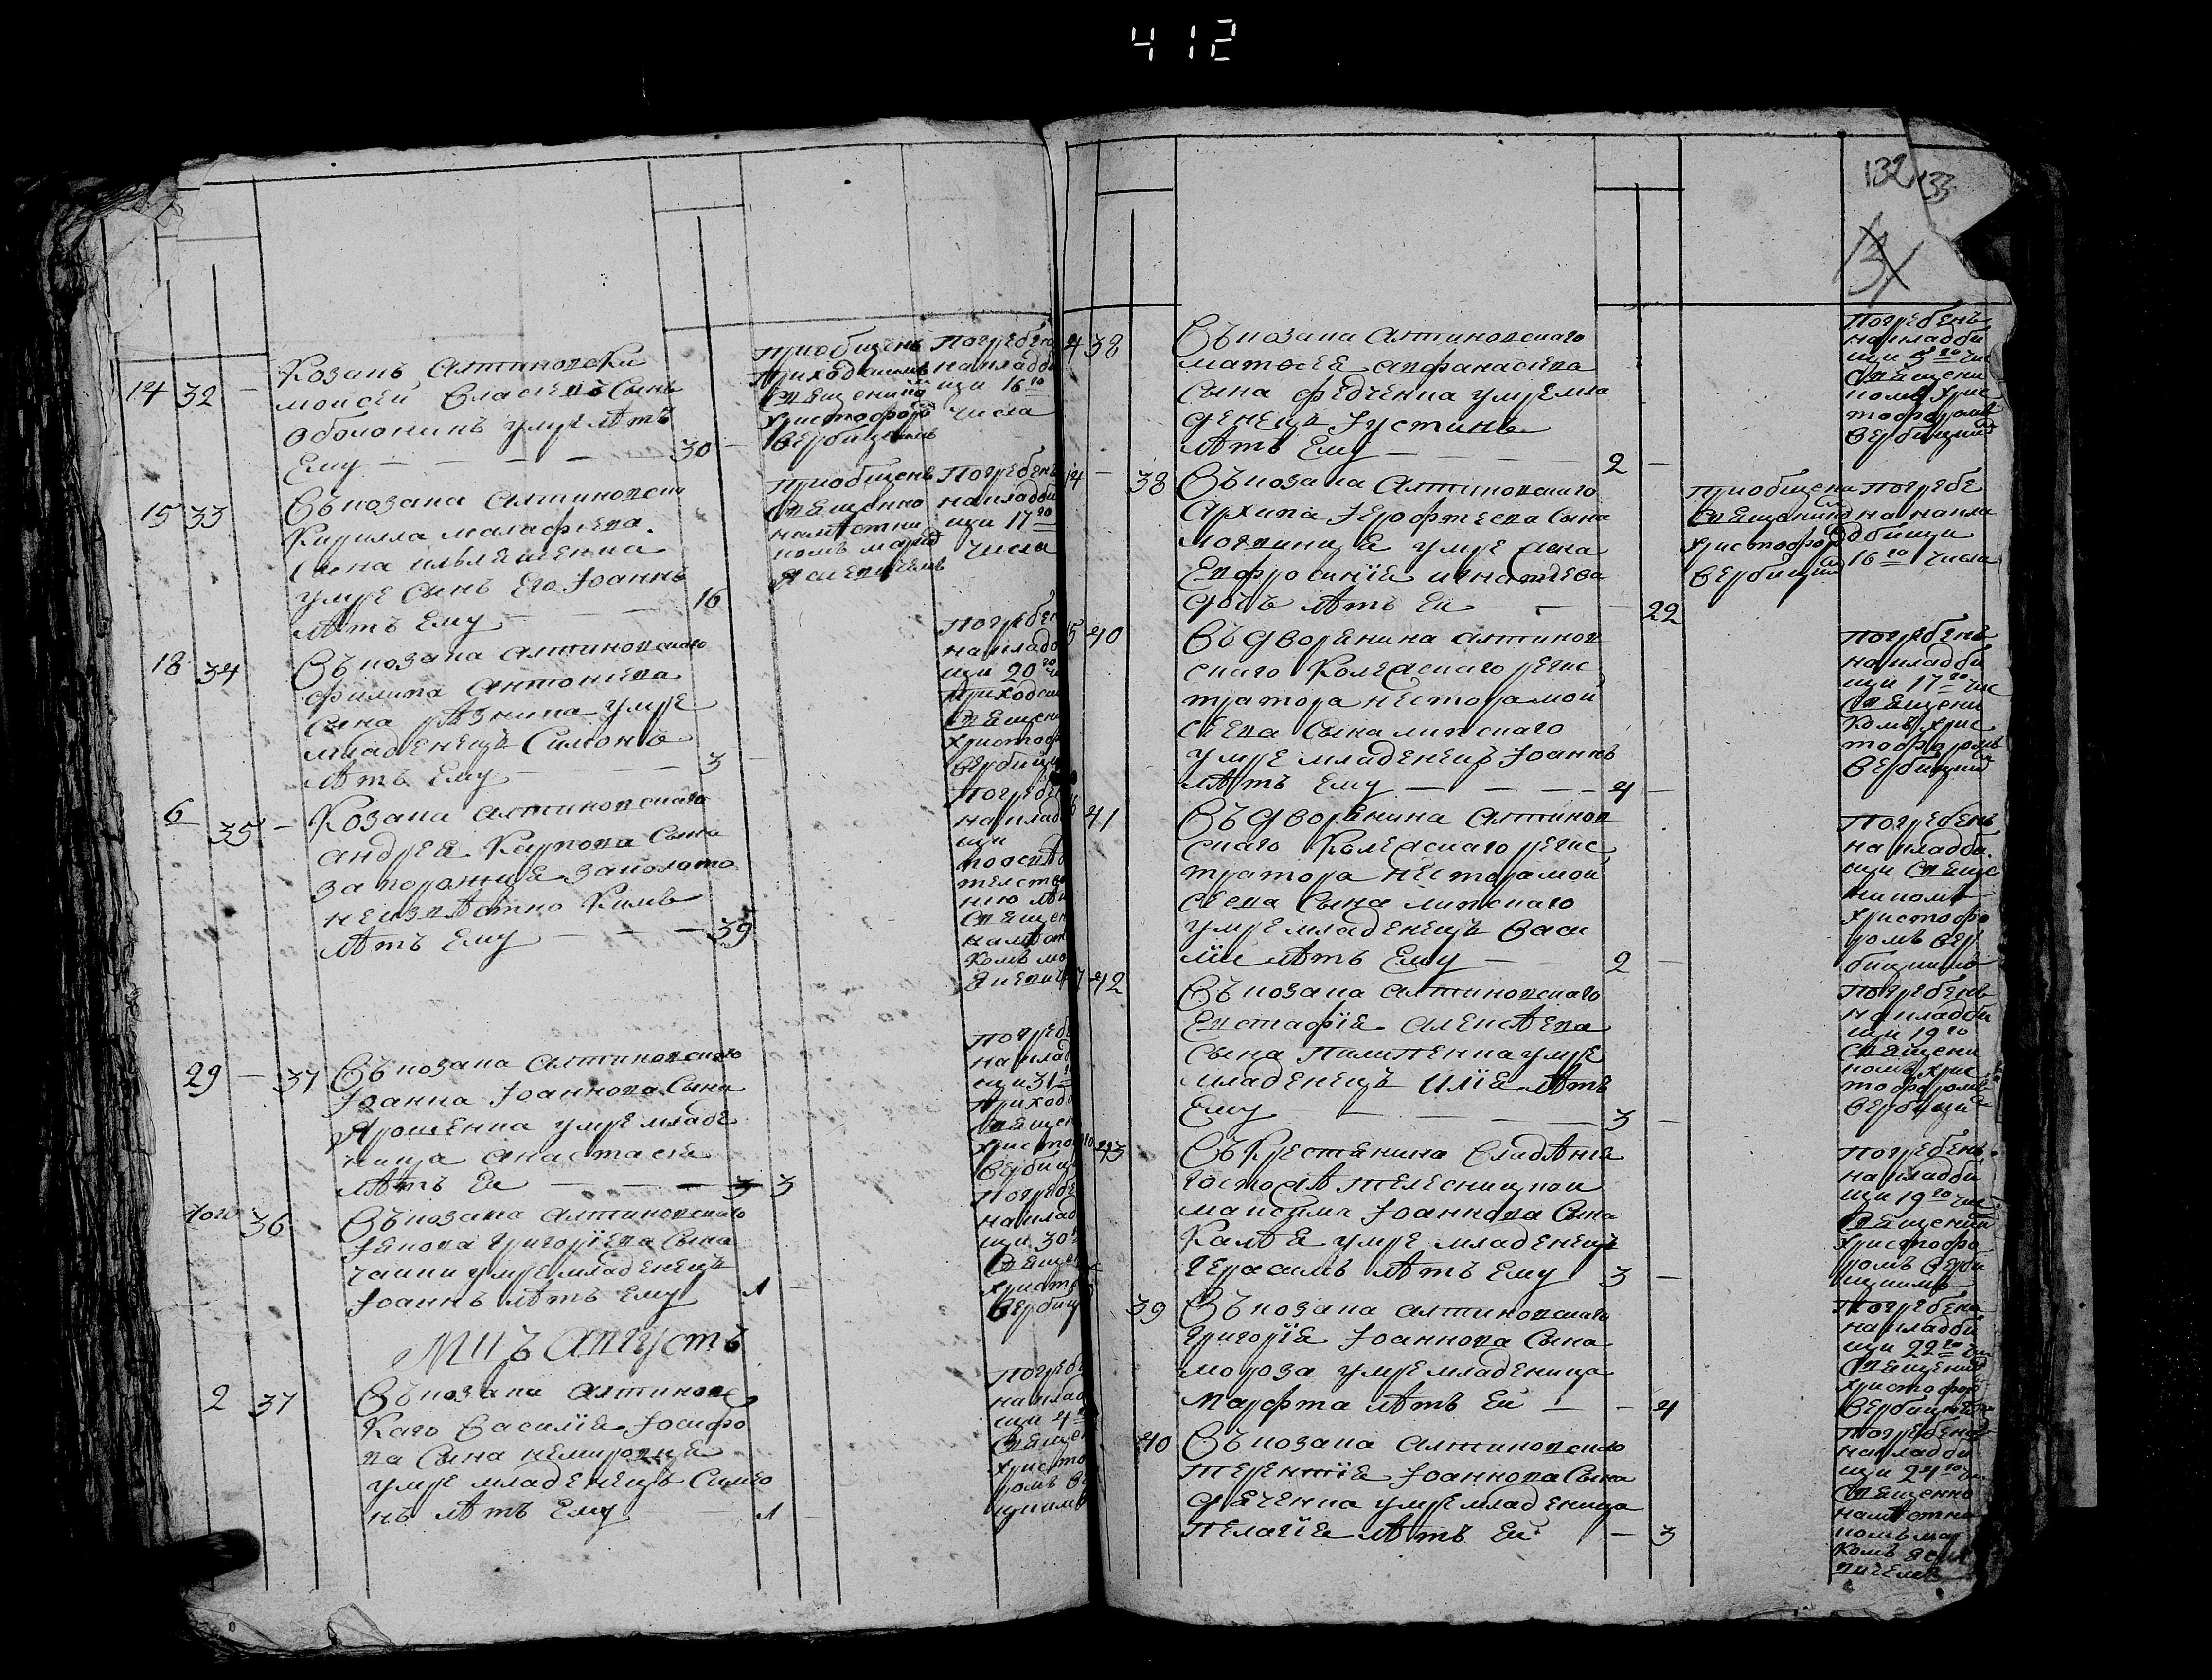 412
132 133
131
14 32 —
Козакъ Алтиновски
Мойсей Власиевъ Сынъ
Оболоникъ умре лѣтъ
Ему — — — — — 30 —
приобщенъ
приходскимъ
Священикомъ
Христофоромъ
Вербицкимъ
Погребенъ
на кладби
щи 16го
числа
15 33
Въ козака Алтиновски
Кирилла Малафѣева
Сина
умре Синъ Его Іоаннъ
лѣтъ Ему — — — 16
приобщенъ
Священно
намѣстни
комъ
Погребенъ
на кладби
щи 17го
числа
18 34
Въ козака Алтиновскаго
Филипа Антониева
Сина рѣзника умре
младенецъ Симонъ
лѣтъ Ему — — — 3 —
Погребен
на кладб
щи 20го
приходск
Священи
Христоф
Вербицк
6 35 —
Козака Алтиновскаго
Андрея Карпова Сына
Запорожця заколото
неизвѣстно Кимъ
лѣтъ Ему — — — 35
Погребе
на клад
щи
Священ
намѣст
комъ
29 — 37
Въ козака Алтиновскаго
Іоанна Іоаннова Сына
Ярошенка умре младе
ница Анастасія
лѣтъ Ея — — — 3 3
Погребе
на клад
щи 31
приход
Священ
Христо
Вербиц
того 36
Въ козака Алтиновскаго
Якова Григоріева Сына
Чайки умре младенецъ
Іоаннъ лѣтъ Ему 1 —
Погребе
на клад
щи 30
Священ
Христ
Вербиц
Мцъ Августъ
2 37
Въ козака Алтиновс
каго Василія Іосифо
ва Сына Немировця
умре младенецъ Симео
нъ лѣтъ Ему 1 —
Погребе
на клад
щи 4
Священ
Христо
ромъ Ве
цкимъ
4 38
Въ козака Алтиновскаго
Матфея Афанасіева
Сына Федченка умре мла
денецъ Іустинъ
лѣтъ Ему — — — — 2 —
Погребенъ
на кладби
щи 5го чис
Священи
комъ Хрис
тофоромъ
Вербицким
14 — 38
Въ козака Алтиновскаго
Архипа Іерофтеева Сына
умре жена
Евфросинія Игнатіева
дочь лѣтъ Ей — — 22
приобщена
Священико
Христофор
Вербицким
Погребе
на на кла
дбищи
16го числа
15 40
Въ дворянина Алтинов
скаго Колежскаго регис
тратора Нестора Мой
сеева Сына Липскаго
умре младенецъ Іоаннъ
лѣтъ Ему — — — — 4 —
Погребенъ
на кладби
щи 17го чис
Священи
комъ Хрис
тофоромъ
Вербицким
16 41
Въ дворянина Алтинов
скаго Колежскаго регис
тратора Нестора Мой
сеева Сына Липскаго
умре младенецъ Васи
лій лѣтъ Ему — 2 —
Погребенъ
на кладби
щи Свяще
никомъ
Христофо
ромъ Вер
бицкимъ
17 42
Въ козака Алтиновскаго
Евстафія Алексѣева
Сына Пилипенка умре
младенецъ Илія лѣтъ
Ему — — — 3 —
Погребенъ
на кладби
щи 19го
Священи
комъ Хрис
тофоромъ
Вербицким
43
Въ Крестянина владѣнія
Госпожѣ Телесницкой
Максима Іоаннова Сына
умре младенецъ
Герасимъ лѣтъ Ему 3 —
Погребенъ
на кладби
щи 19го чис
Священик
Христофо
ромъ Верби
цкимъ
39
Въ козака Алтиновскаго
Григорія Іоаннова Сына
Мороза умре младеница
Марфта лѣтъ Ей — — 4
Погребена
на кладби
щи 22го чи
Священик
Христофор
Вербицким
40
Въ козака Алтиновскаго
Терентія Іоаннова Сына
Дяченка умре младеница
Пелагія лѣтъ Ей — 3
Погребена
на кладби
щи 24го чи
Священно
намѣстни
комъ Мар
комъ